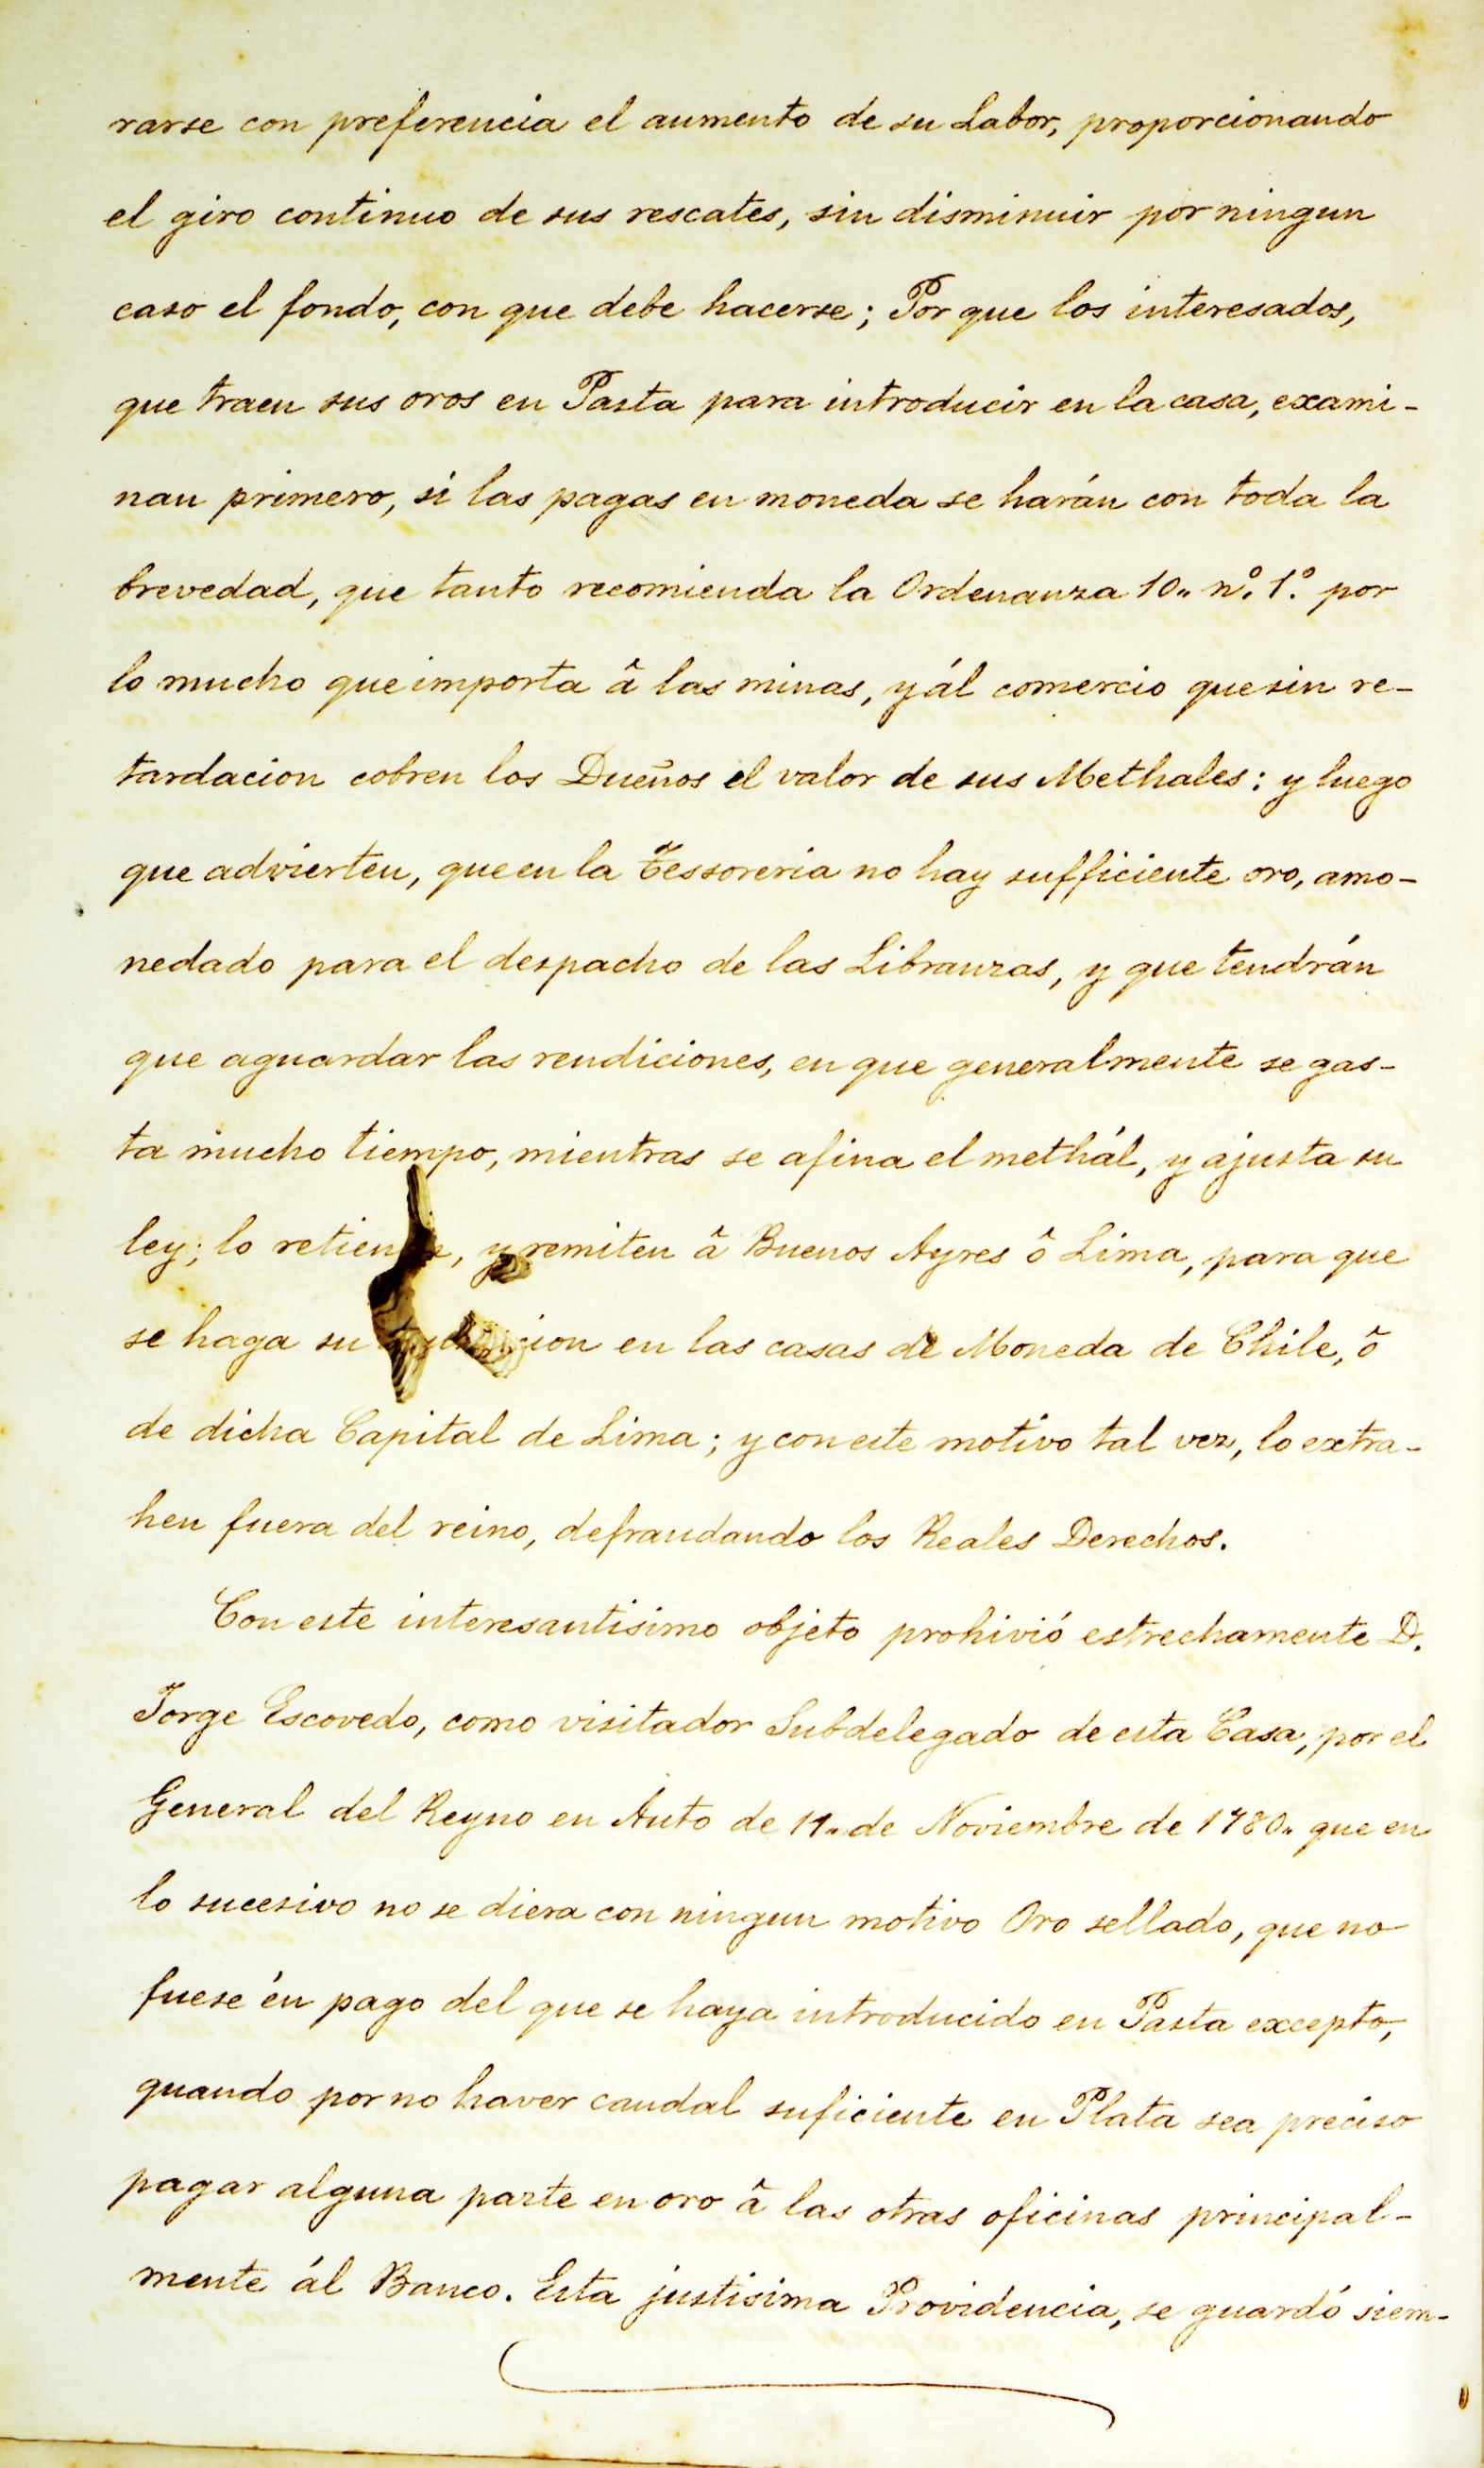 rarse con preferencia el aumento de su Labor, proporcionando
el giro continuo de sus rescates, sin disminuir por ningun
caso el fondo, con que debe hacerse; Por que los interesados,
que traen sus oros en Pasta para introducir en la casa, exami-
nan primero, si las pagas en moneda se harán con toda la
brevedad, que tanto recomienda la Ordenanza 10.. nº. 1º. por
lo mucho que importa â las minas, y ál comercio que sin re-
tardacion cobren los Dueños el valor de sus Methales: y luego
que advierten, que en la Tessoreria no hay sufficiente oro, amo-
nedado para el despacho de las Libranzas, y que tendrán
que aguardar las rendiciones, en que generalmente se gas-
ta mucho tiempo, mientras se afina el methál, y ajusta su
ley; lo retienen, y remiten â Buenos Ayres ô Lima, para que
se haga su en las casas de Moneda de Chile, ô
de dicha Capital de Lima; y con este motivo tal vez, lo extra-
hen fuera del reino, defraudando los Reales Derechos.
Con este interesantisimo objeto prohivió estrechamente D.
Jorge Escovedo, como visitador Subdelegado de esta Casa, por el
General del Reyno en Auto de 11.. de Noviembre de 1780.. que en
lo sucesivo no se diera con ningun motivo Oro sellado, que no
fuese én pago del que se haya introducido en Pasta excepto,
quando por no haver caudal suficiente en Plata sea preciso
pagar alguna parte en oro â las otras oficinas principal-
mente ál Banco. Esta justisima Providencia, se guardó siem-